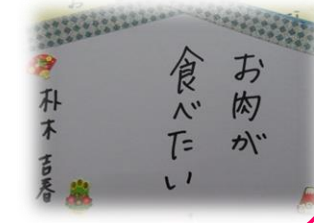 お肉が
食べたい
朴木 吉春